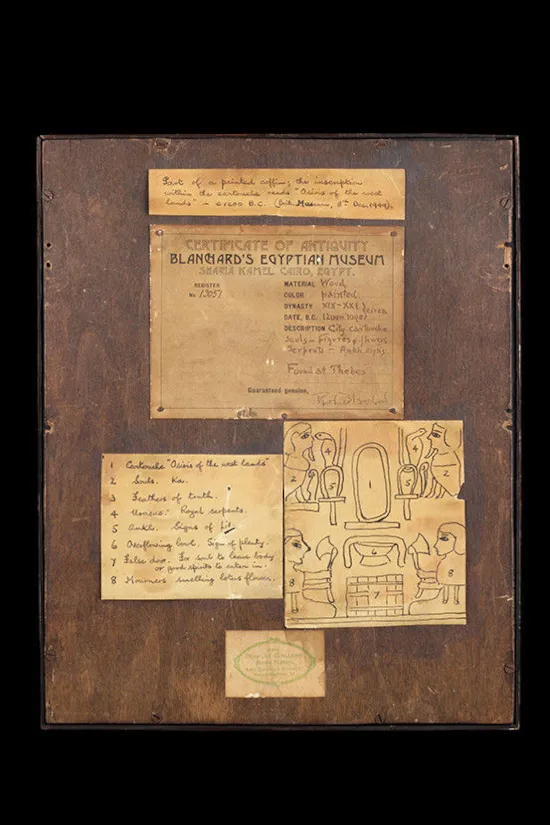 Part of a painted coffin; the inscription
within the cartouche reads "Osiris of the west
lands" – c1600 B.C. (Brit. Museum, 8th Dec, 1949).
CERTIFICATE OF ANTIQUITY
BLANCHARD'S EGYPTIAN MUSEUM
SHARIA KAMEL CAIRO, EGYPT.
REGISTER
No. 13057
MATERIAL Wood
COLOR painted
DYNASTY XIX-XXI
DATE, B.C. circa
DESCRIPTION City cartouche
Souls – Figures & flowers
Serpents – Ankh signs
Found at Thebes
Guaranteed genuine,
1 Cartouche "Osiris of the west lands"
2 Souls. Ka.
3 Feathers of truth.
4 Uraeus. Royal serpents.
5 Ankh. Signs of
6 Overflowing bowl. Sign of plenty.
7 False door. For soul to leave body
or good spirits to enter in.
8 Mourners smelling lotus flower.
4
4
2
5
1
5
2
6
8
7
8